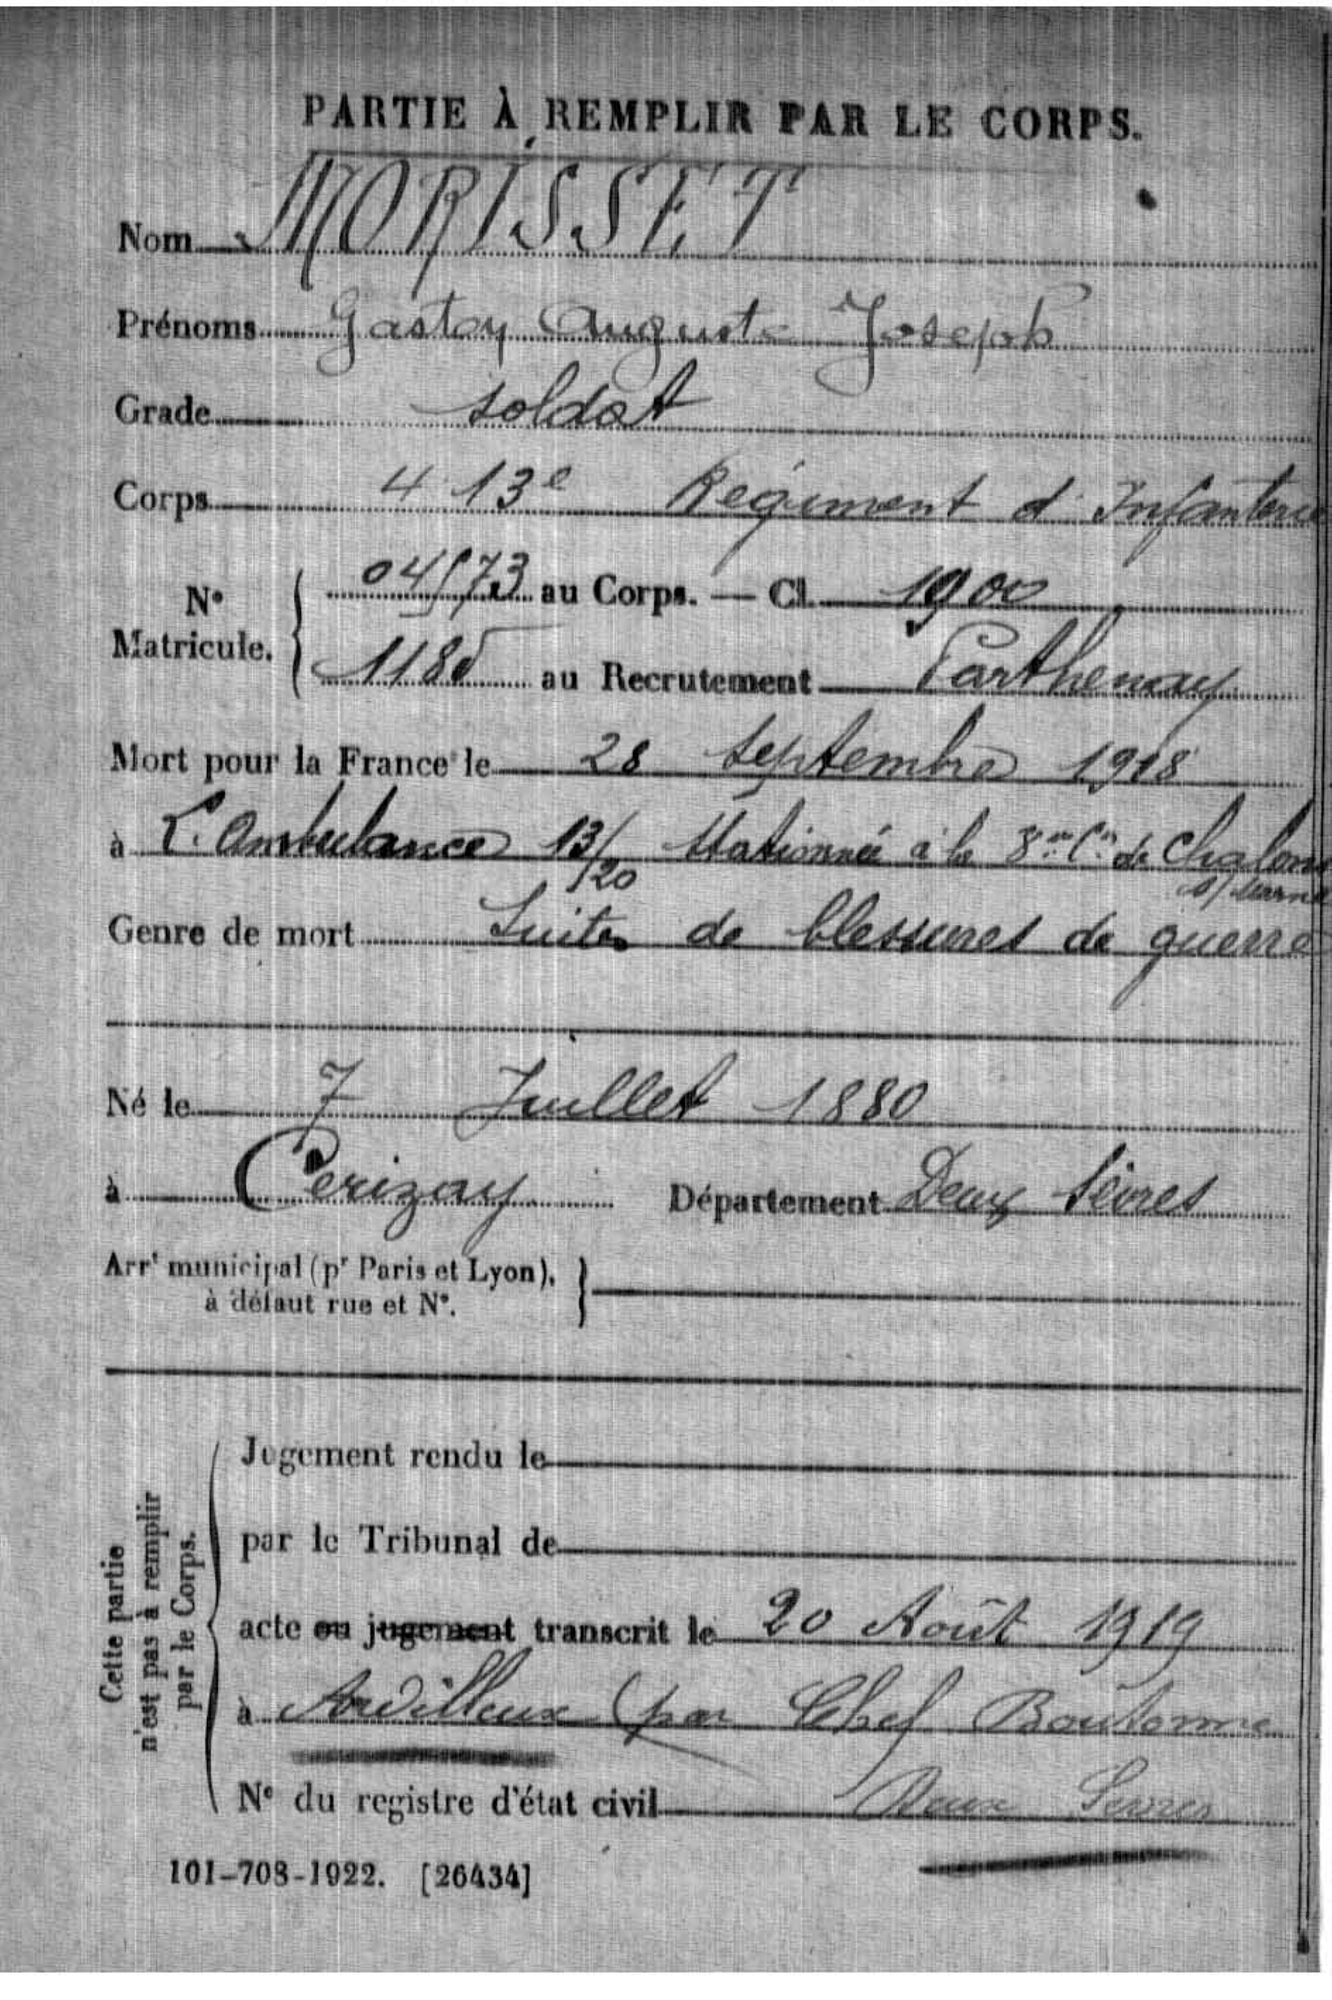 PARTIE À REMPLIR PAR LE CORPS.
Nom MORISSET
Prénoms Gaston Auguste Joseph
Grade soldat
Corps 413e Régiment d'Infanterie
N° Matricule. { 04573 au Corps. — Cl. 1900
1185 au Recrutement Parthenay
Mort pour la France le 28 Septembre 1918
à L'Ambulance 13/20 Stationnée à la 8me Cn de Chalons
s/ Marne
Genre de mort Suites de blessures de guerre
Né le 7 Juillet 1880
à Cerizay Département Deux Sèvres
Arrt municipal (pr Paris et Lyon),
à défaut rue et N°.
Cette partie
n'est pas à remplir
par le Corps.
Jugement rendu le
par le Tribunal de
acte ou jugement transcrit le 20 Août 1919
à Ardilleux (par Chef Boutonne
N° du registre d'état civil Deux Sevres
101-708-1922. [26434]